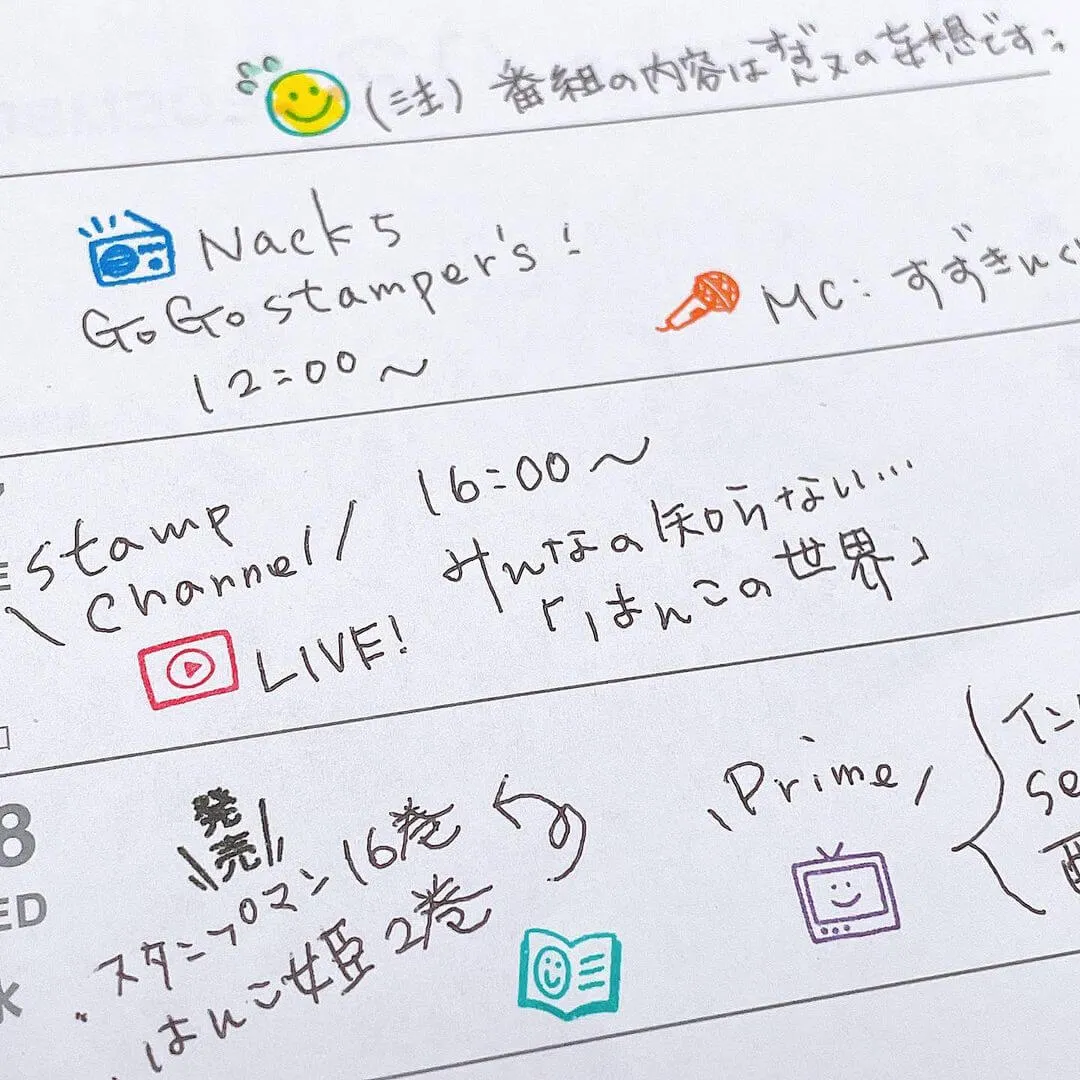 (注) 番組の内容はすずんヌの妄想です
Nack5
GoGo stamper's!
12:00〜
MC: すずきんぐ
stamp
Channel
LIVE!
16:00〜
みんなの知らない…
「はんこの世界」
8
ED
発売
スタンプマン 16巻
はんこ姫 2巻
Prime
イン
se